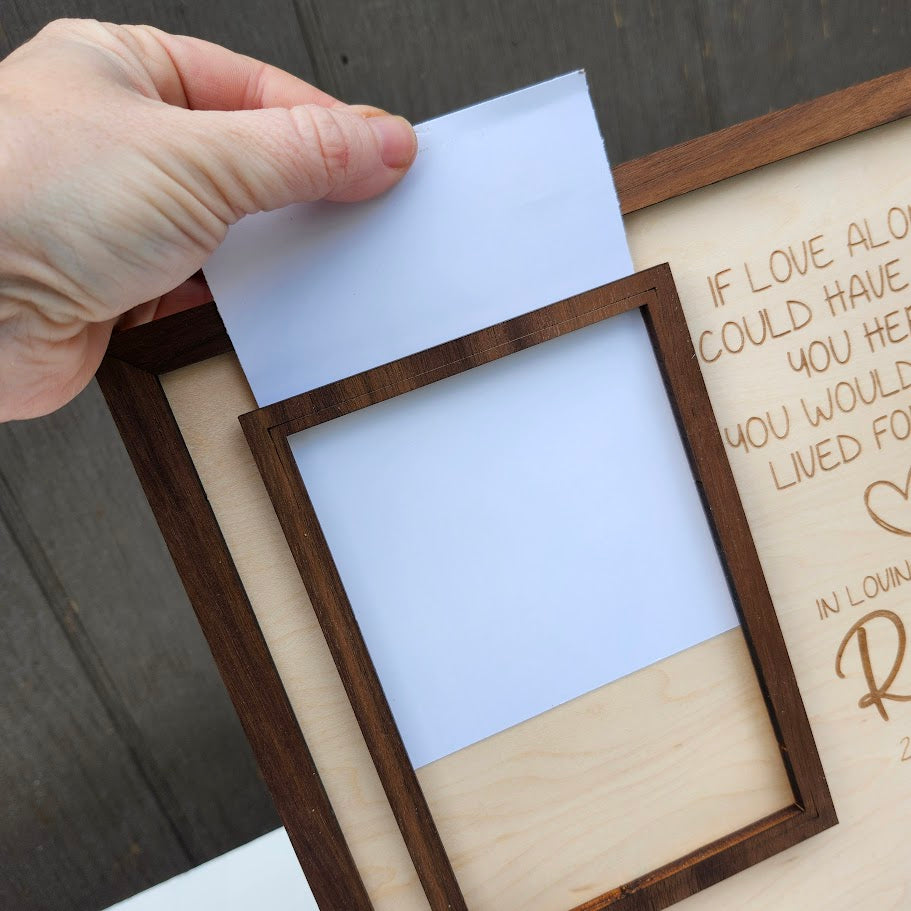 IF LOVE ALO
COULD HAVE
YOU HE
YOU WOULD
LIVED FO
IN LOVIN
R
2